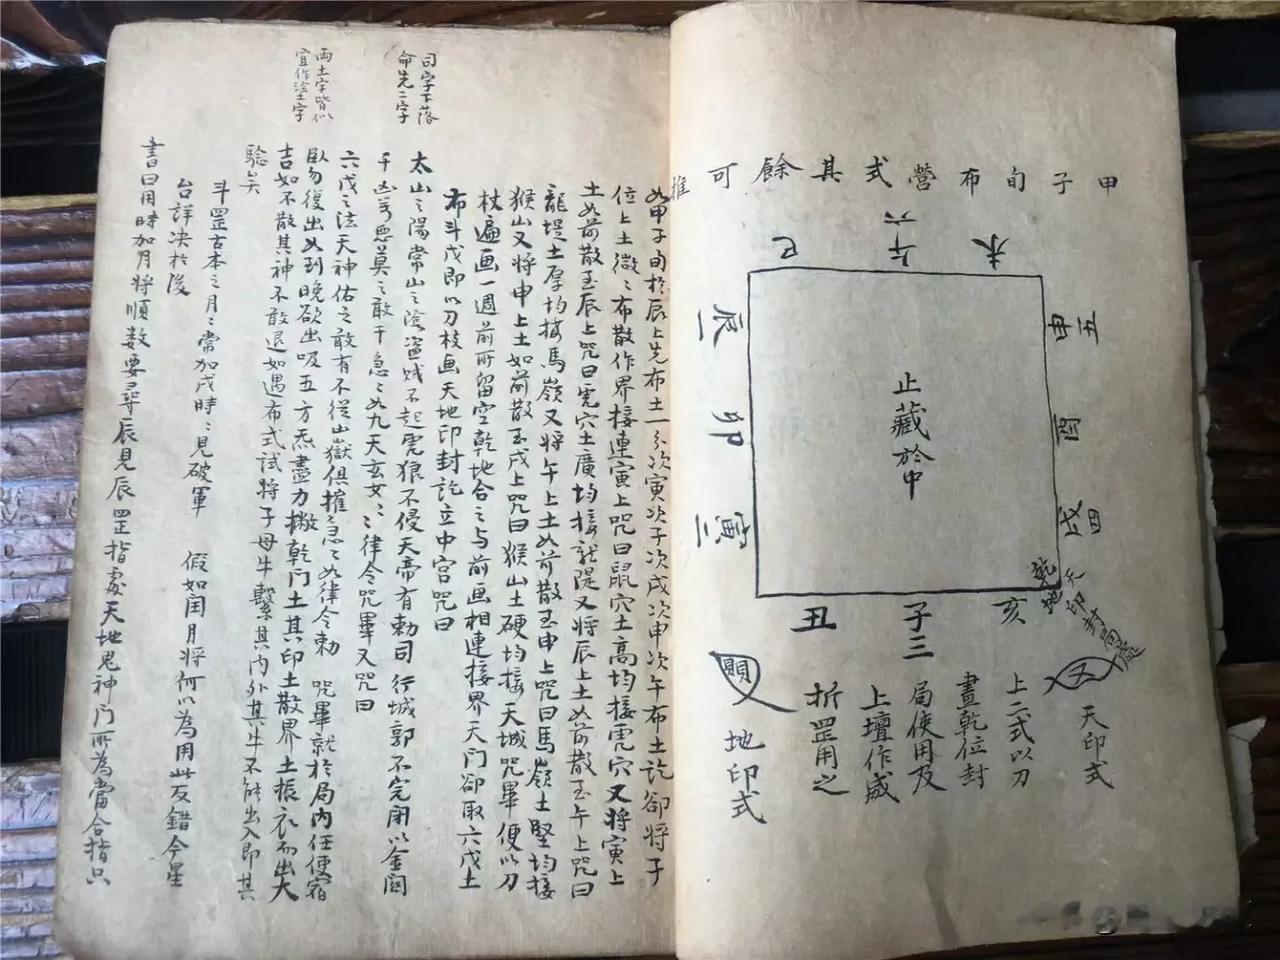 甲子旬布營式其餘可推
未
午六
巳
辰一
卯
寅二
丑
子三
亥
戌四
酉
申五
止藏於中
天地印封局處
天印式
上二式以刀
畫乾位封
局使用及
上壇作威
折罡用之
地印式
如甲子旬於辰上先布土一

次寅次子次戌次申次午布土訖卻將子
位上土微〻布散作界接連寅上咒曰鼠穴土高均接虎穴又將寅上
土如前散至辰上咒曰虎穴土廣均接龍隄又將辰上土如前散至午上咒曰
龍堤土厚均接馬嶺又將午上土如前散至申上咒曰馬嶺土堅均接
猴山又將申上土如前散至戌上咒曰猴山土硬均接天城咒畢便以刀
杖遍画一週前所留空乾地合之与前画相連接界天门卻取六戊土
布斗戊即以刀枝画天地印封訖立中宫咒曰
太山之陽常山之陰盜贼不起虎狼不侵天帝有勅司行城郭不完闭以金関
千凶萬惡莫之敢干急〻如九天玄女〻〻律令咒畢又咒曰
六戊之法天神佑之敢有不從山嶽俱摧急〻如律令勅 咒畢就於局内任便宿
臥勿復出如到晚欲出吸五方炁盡力撒乾门土其印土散界土振衣而出大
吉如不散其神不敢退如遇布式試将子母牛繫其内外其牛不能出入即其
驗矣
斗罡古本之月〻常加戌時〻見破軍 假如闰月将何以為用此反錯今星
台詳决於後
書曰用時加月将順数要尋辰見辰罡指處天地鬼神门所為當合指只
司字下落
命先二字
両土字皆似
宜作塗土字